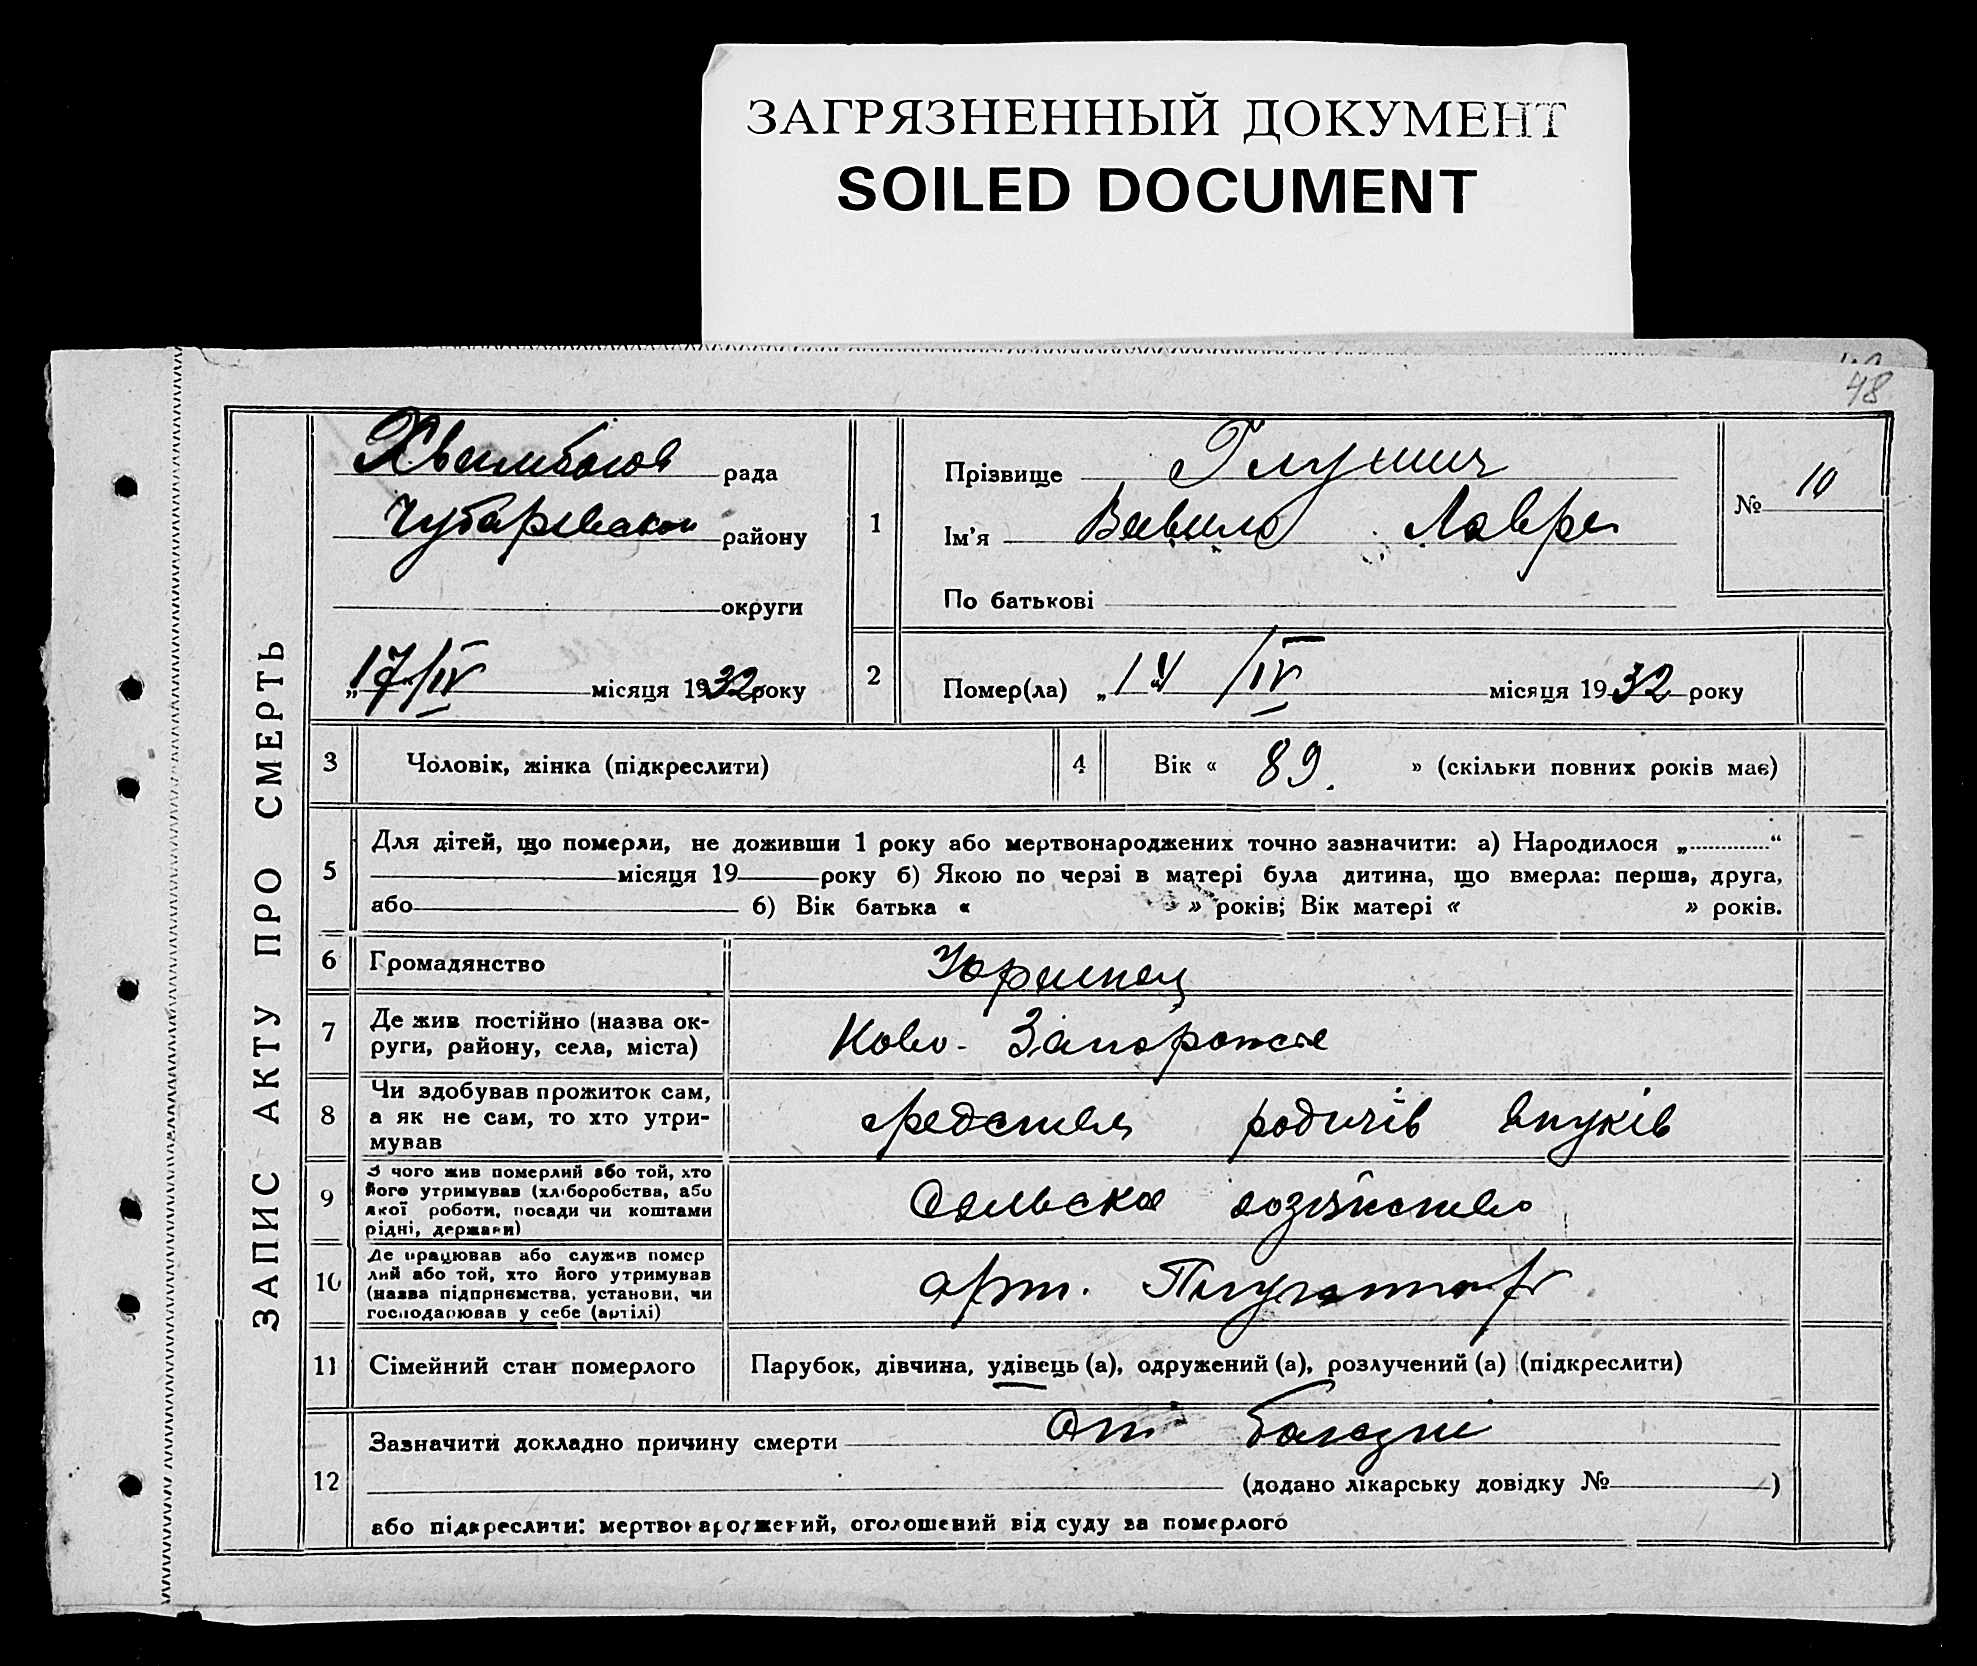 ЗАГРЯЗНЕННЫЙ ДОКУМЕНТ
SOILED DOCUMENT
48
ЗАПИС АКТУ ПРО СМЕРТЬ
рада
району
округи
„17/IV місяця 1932 року
1
Прізвище Глушич
Ім'я Вавило Лавре
По батькові
№ 10
2
Помер(ла) „14“ /IV місяця 1932 року
3 Чоловік, жінка (підкреслити)
4 Вік « 89. » (скільки повних років має)
5 Для дітей, що померли, не доживши 1 року або мертвонароджених точно зазначити: а) Народилося „ “
місяця 19 року б) Якою по черзі в матері була дитина, що вмерла: перша, друга,
або б) Вік батька « » років; Вік матері « » років.
6 Громадянство
7 Де жив постійно (назва ок-
руги, району, села, міста)
Ново-Запорожсе
8 Чи здобував прожиток сам,
а як не сам, то хто утри-
мував
средствам родичів внуків
9 З чого жив померлий або той, хто
його утримував (хліборобства, або
якої роботи, посади чи коштами
рідні, держави)
Сельское хозяйство
10 Де працював або служив помер
лий або той, хто його утримував
(назва підприємства, установи, чи
господарював у себе (артілі)
арт.
11 Сімейний стан померлого
Парубок, дівчина, удівець (а), одружений (а), розлучений (а) (підкреслити)
12 Зазначити докладно причину смерти От болезни
(додано лікарську довідку № )
або підкреслити: мертвонароджений, оголошений від суду за померлого